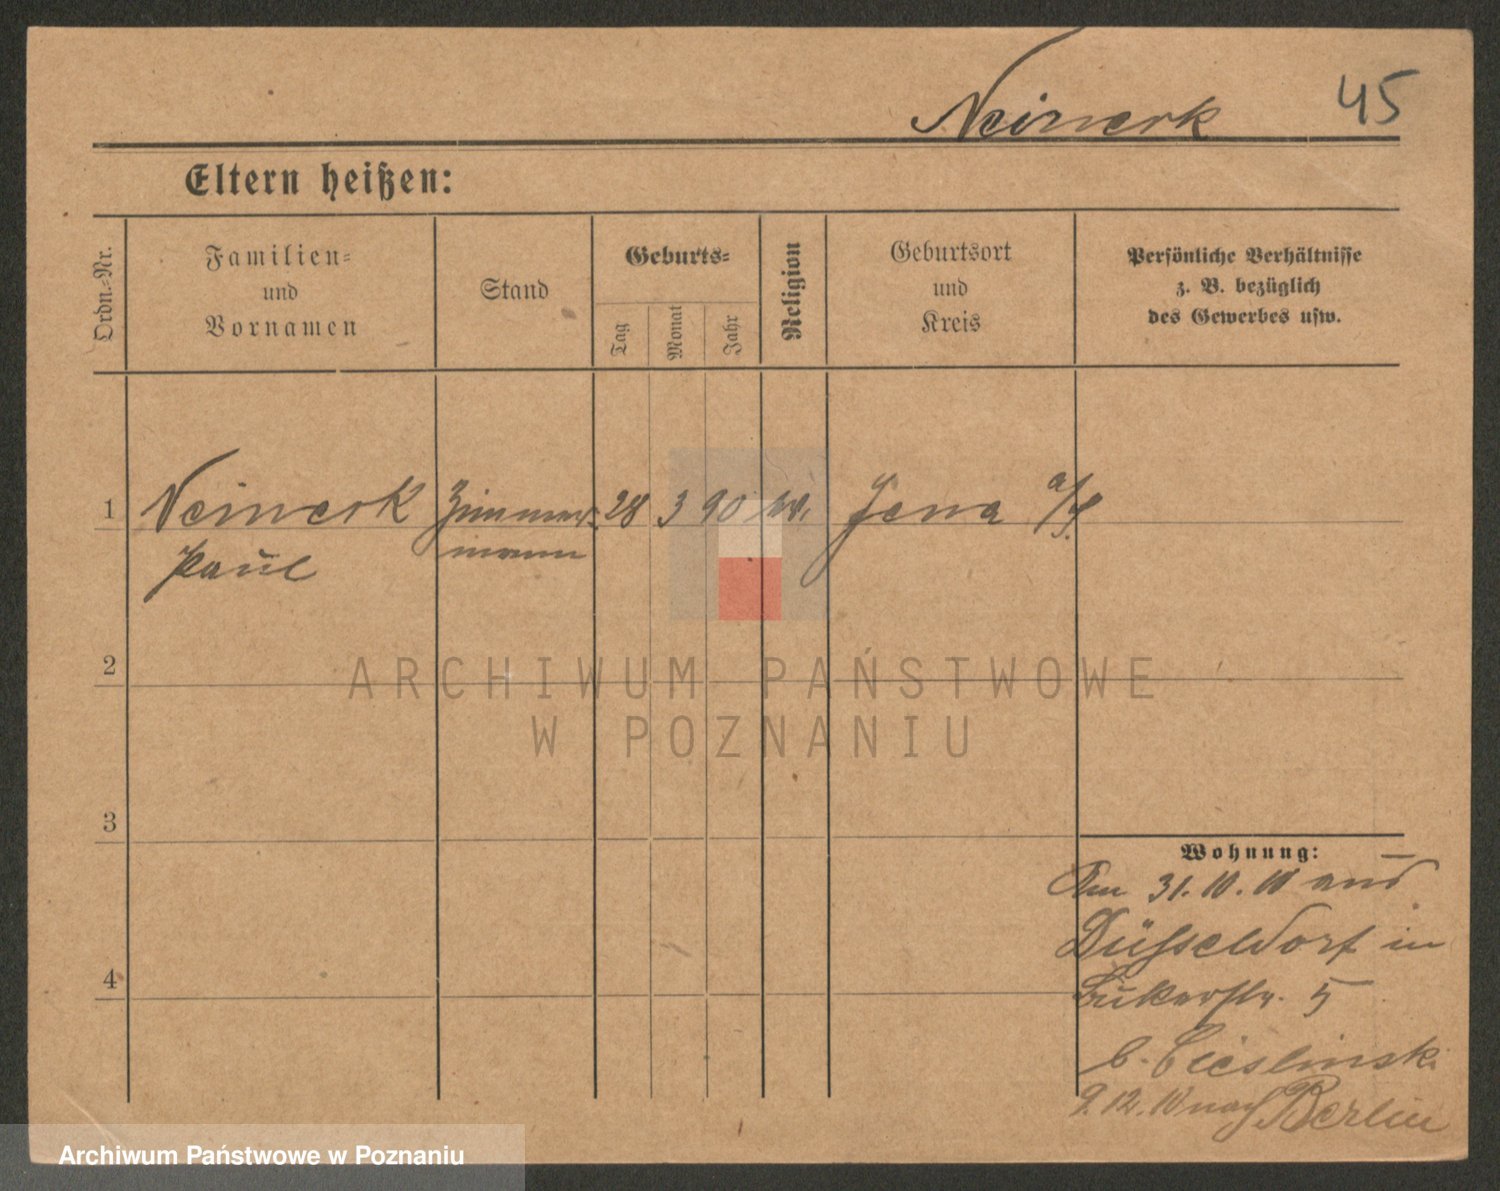 Neiwerk 45
Eltern heißen:
Ordn.-Nr.
Familien-
und
Vornamen
Stand
Geburts-
Tag
Monat
Jahr
Religion
Geburtsort
und
Kreis
Persönliche Verhältnisse
z. B. bezüglich
des Gewerbes usw.
1 Neiwerk Zimmer- 28 3 90 Jena a/S.
Paul mann
2
ARCHIWUM PAŃSTWOWE
W POZNANIU
3
Wohnung:
Am 31.10.10 aus
Düsseldorf in
5
b. Cieslinski
9.12.10 nach Berlin
4
Archiwum Państwowe w Poznaniu